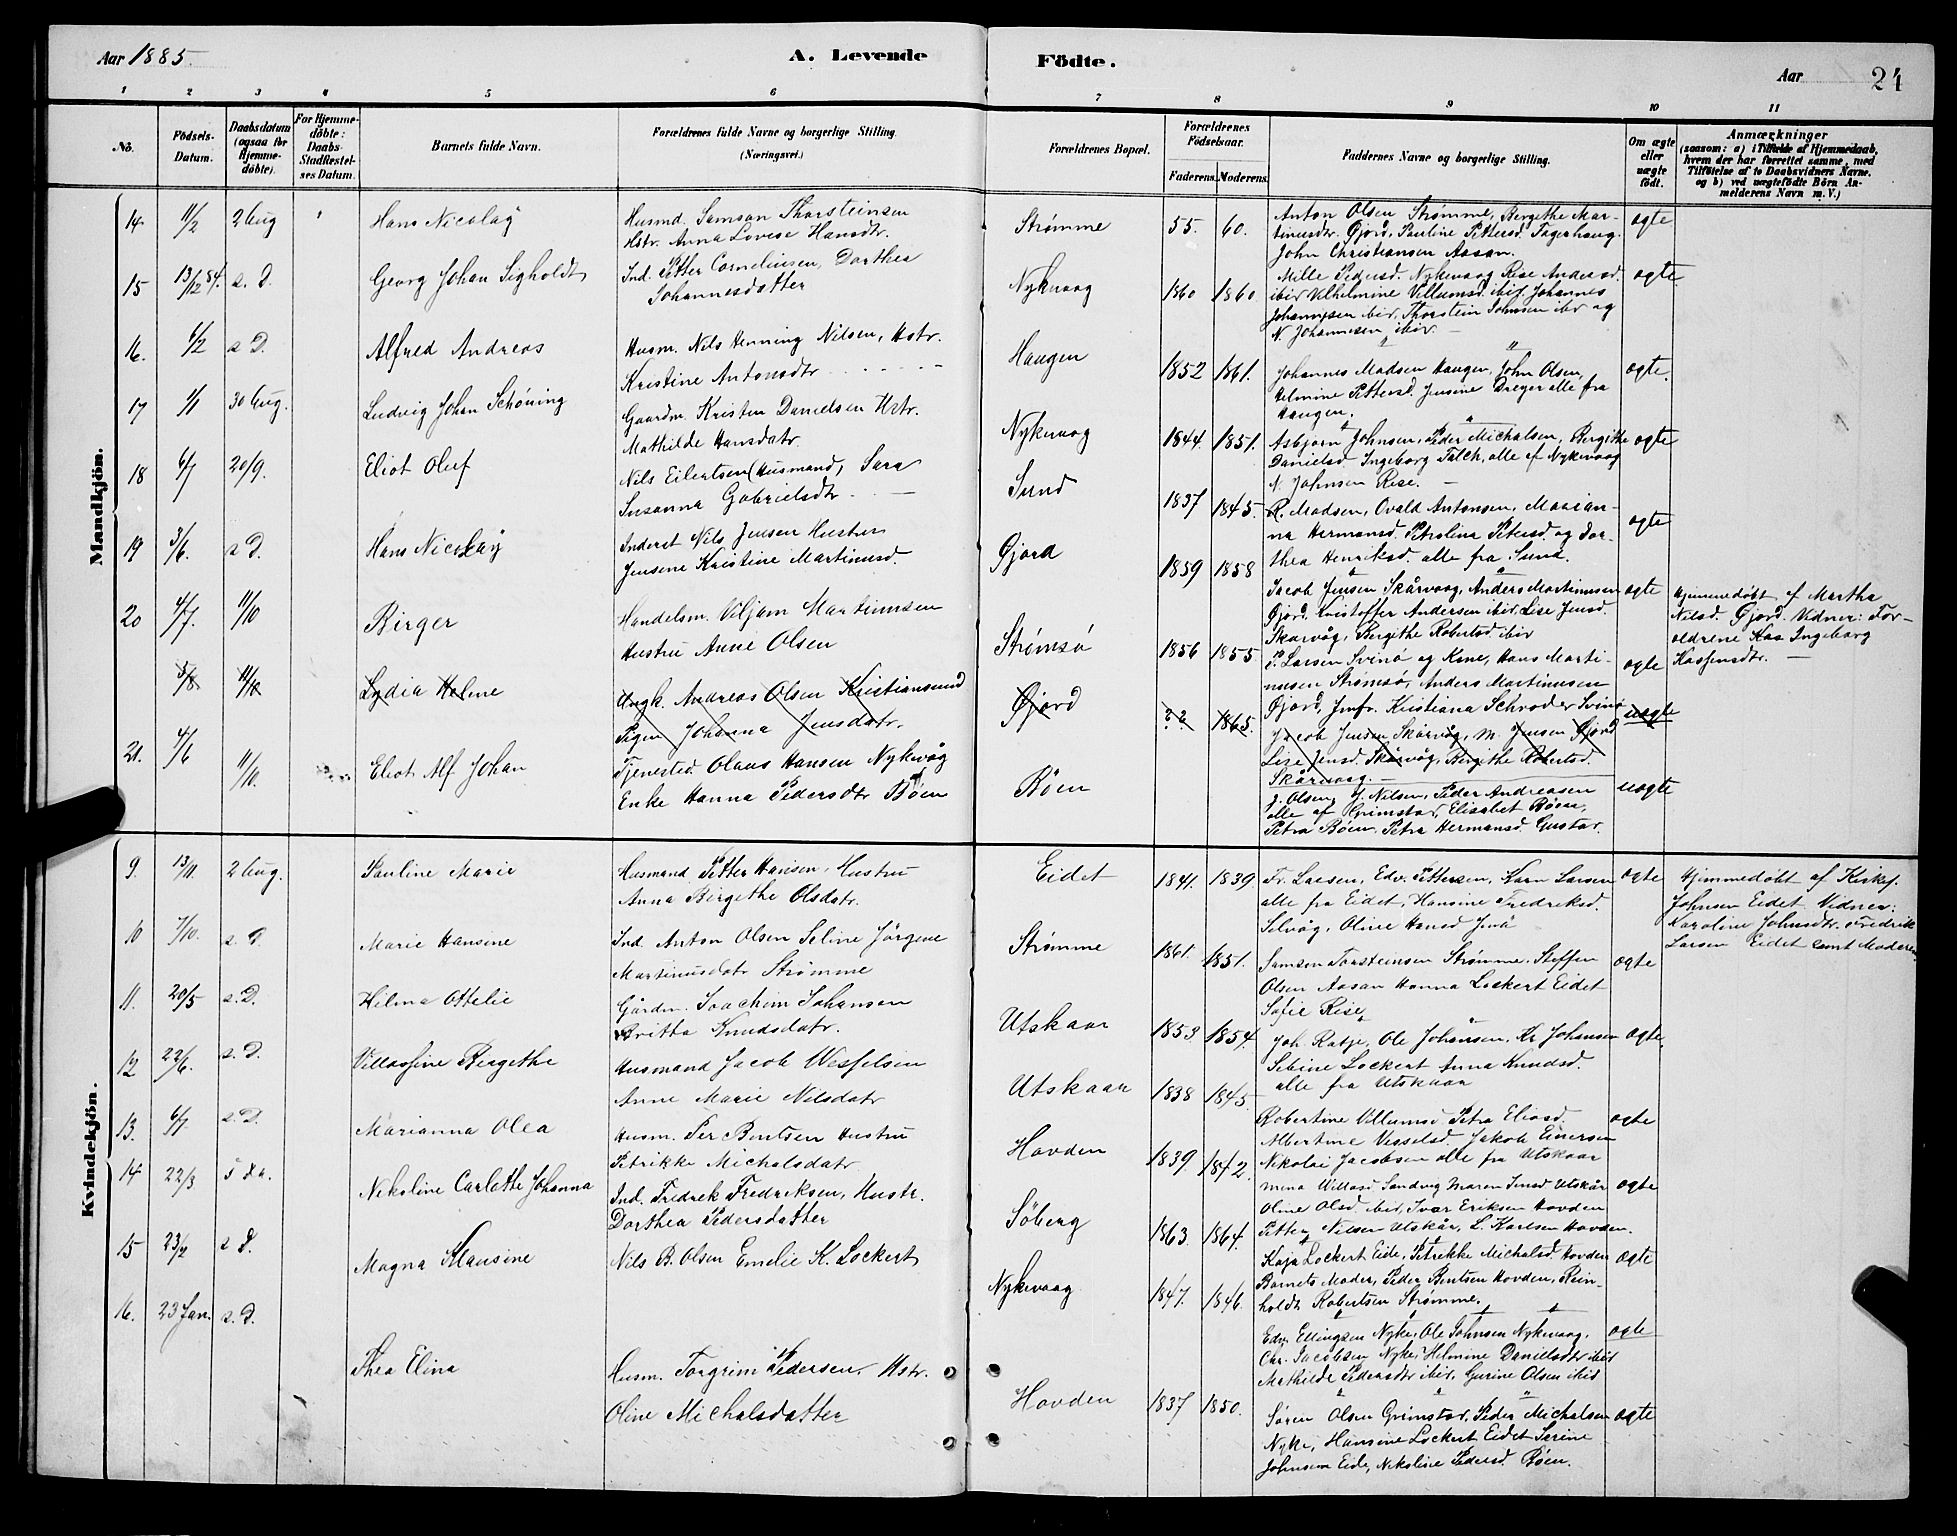 Aar 1885.
A. Levende Födte.
Aar 24
1 2 3 4 5 6 7 8 9 10 11
No.
Födsels-Datum.
Daabsdatum (ogsaa for Hjemme-döbte).
For Hjemme-döbte: Daabs-Stadfæstel-ses Datum.
Barnets fulde Navn.
Forældrenes fulde Navne og borgerlige Stilling. (Næringsvei.)
Forældrenes Bopæl.
Forældrenes Födselsaar.
Faderens. Moderens.
Faddernes Navne og borgerlige Stilling.
Om ægte eller uægte födt.
Anmærkninger
(saasom: a) i Tilfælde af Hjemmedaab,
hvem der har forrettet samme, med
Tilföielse af to Daabsvidners Navne.
og b) ved uægtefödte Börn An-
melderens Navn m. V.)
Mandkjön.
14. 11/2 2 Aug Hans Nicolay
Husmd. Samson Thorsteinsen
Hstr. Anna Lovise Hansdtr.
Strømme 55. 60.
Anton Olsen Strømme, Bergithe Mar-
tinusdtr. Øjord, Pauline Pettersd. Fagerhaug.
John Christiansen Aasan.
ægte
15 13/12 84. s. D. Georg Johan Sigholdt
Ind. Petter Corneliusen, Dorthea
Johannesdatter
Nykvaag 1860 1860.
Mille Pedersd. Nykvaag Rise Andersd.
ibir Vilhelmine Villumsd. ibir. Johannes
Johannesen ibir, Thorstein Johnsen ibir og
N. Johannesen ibir. —
ægte
16. 6/2 s D. Alfred Andreas
Husm. Nils Henning Nilsen, Hstr.
Kristine Antonsdtr
Haugen 1852 1861.
Johannes Madsen Haugen, John Olsen,
Helmine Pettersd. Jensine Dreyer alle fra
Haugen.
ægte.
17 1/1 30 Aug. Ludvig Johan Schöning
Gaardm. Kristen Danielsen Hstr.
Mathilde Hansdatr.
Nykvaag 1844 1851.
Asbjørn Johnsen, Peder Michalsen, Bergithe
Danielsd. Ingeborg Falch, alle af Nykvaag
N. Johnsen Rise. —
ægte
18 6/7 20/9. Eliot Oluf
Nils Eilertsen (Husmand, Sara
Susanna Gabrielsdtr
Sund 1837 1845.
R. Madsen, Ovald Antonsen, Marian-
na Hermansd. Petrolina Petersd. og Dor-
thea Henriksd. alle fra Sund.
ægte
19 3/6. s D. Hans Nicolay
Inderst Nils Jensen Hustru
Jensene Kristine Martinusd.
Øjord 1859 1858
Jacob Jensen Skårvaag, Anders Martinusen
Øjord, Kristoffer Andersen ibir, Lise Jensd.
Skårvåg, Bergithe Robertsd. ibir
ægte
Hjemmedøbt af Martha
Nilsd. Øjord. Vidner: For-
ældrene Kaa Ingeborg
Kassensdtr. —
20 4/7. 11/10 Birger
Handelsm. Viljam Martinusen
Hustru Anne Olsen
Strømsø 1856 1855
P. Larsen Svinø og Kone, Hans Marti-
nusen Strømsø, Anders Martinusen
Øjord, Jmfr. Kristiana Schrøder Svinø
ægte
5/8 11/10 Lydia Helene
Ungk. Andreas Olsen Kristiansund
Pigen Johanna Jensdatr.
Øjord ?? 1865.
Jacob Jensen Skårvåg, M. Jensen Øjord
Lise Jensd. Skårvåg, Bergithe Robertsd.
Skårvaag. —
uægte
21. 4/6 11/10. Eliot Alf Johan
Tjenested. Olaus Hansen Nykvåg
Enke Hanna Pedersdtr Bøen
Bøen
J. Olsen, J. Nilsen, Peder Andreasen
alle af Grimstad, Elisabet Bøen,
Petra Bøen, Petra Hermansd. Gustad.
uægte
Kvindekjön.
9. 13/11 2 Aug. Pauline Marie
Husmand Petter Hansen, Hustru
Anna Birgethe Olsdatr.
Eidet 1841. 1839
Fr. Larsen, Edv. Pettersen, Karn Larsen
alle fra Eidet, Hansine Fredriksd.
Selvåg, Oline Hansd
ægte
Hjemmedøbt af Kirkes.
Johnsen Eidet. Vidner:
Karoline Johnsdtr. Fredrik
Larsen Eidet samt Moderen
10 7/10. s. D. Marie Hansine
Ind. Anton Olsen Seline Jörgene
Martinusdatr Strømme
Strømme 1861. 1851.
Samson Torsteinsen Strømme, Steffen
Olsen Aasan Hanna Lockert Eidet
Sofie Rise
ægte
11. 20/5 s. D. Hilma Ottelie
Gårdm. Joachim Johansen
Britta Knudsdatr.
Utskaar 1853 1854.
Joh. Ratje, Ole Johansen, Kr Johansen
Sebine Lockert Anna Knudsd.
alle fra Utskaar
ægte.
12 22/6. s. D. Villassine Bergethe
Husmand Jacob Wesselsen
Anne Marie Nilsdatr
Utskaar 1838 1845
Robertine Villumsd. Petra Eliasd.
Albertine Vesselsd. Jakob Einersen
Nikolai Jacobsen alle fra Utskaar
ægte
13. 6/7 s. D. Marianna Olea
Husm. Per Bentsen Hustru
Petrikke Michalsdatr
Hovden 1839 1842.
Mina Willasd. Sandvig Maren Jensd Utskår
Oline Olsd. ibir, Ivar Eriksen Hovden
Petter Nilsen Utskår, L. Karlsen Hovden.
ægte
14 22/3 5 Nikoline Carlotte Johanna
Ind. Fredrek Fredriksen, Hustr.
Dorthea Pedersdatter
Söberg 1863. 1864.
Kaja Lockert Eide, Petrekke Michalsd. Hovden
Barnets Moder, Peder Bentsen Hovden, Rein-
holdt Robertsen Strømme.
ægte
15 23/2 s. D. Magna Klausine
Nils B. Olsen Emelie K. Lockert
Nykvaag 1847. 1846.
Edv. Ellingsen Nyke, Ole Johnsen Nykvaag,
Chr. Jacobsen Nyke, Helmine Danielsdtr ibir
Mathilde Pedersdtr ibir, Gurine Olsen ibid
ægte
16. 23 Jan. s. D. Thea Elina
Husm. Torgrim Pedersen. Hstr.
Oline Michalsdatter
Hovden 1837 1850.
Søren Olsen Grimstad, Peder Michalsen
Nyke, Hansine Lockert Eidet Serine
Johnsen Eide, Nikoline Pedersd. Bøen.
ægte